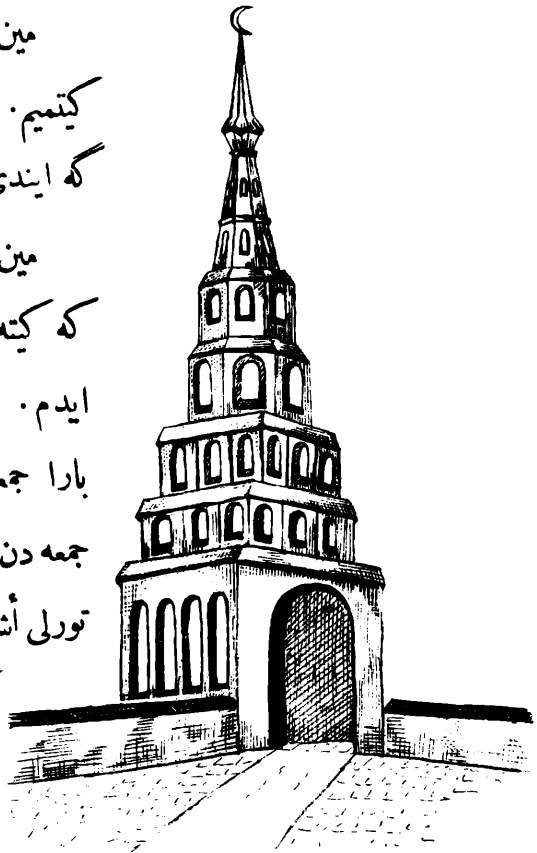 مين
كيتميم.
گه ايندى
مين
كه كيته
ايدم.
بارا جمع
جمعه دن
تورلى أش